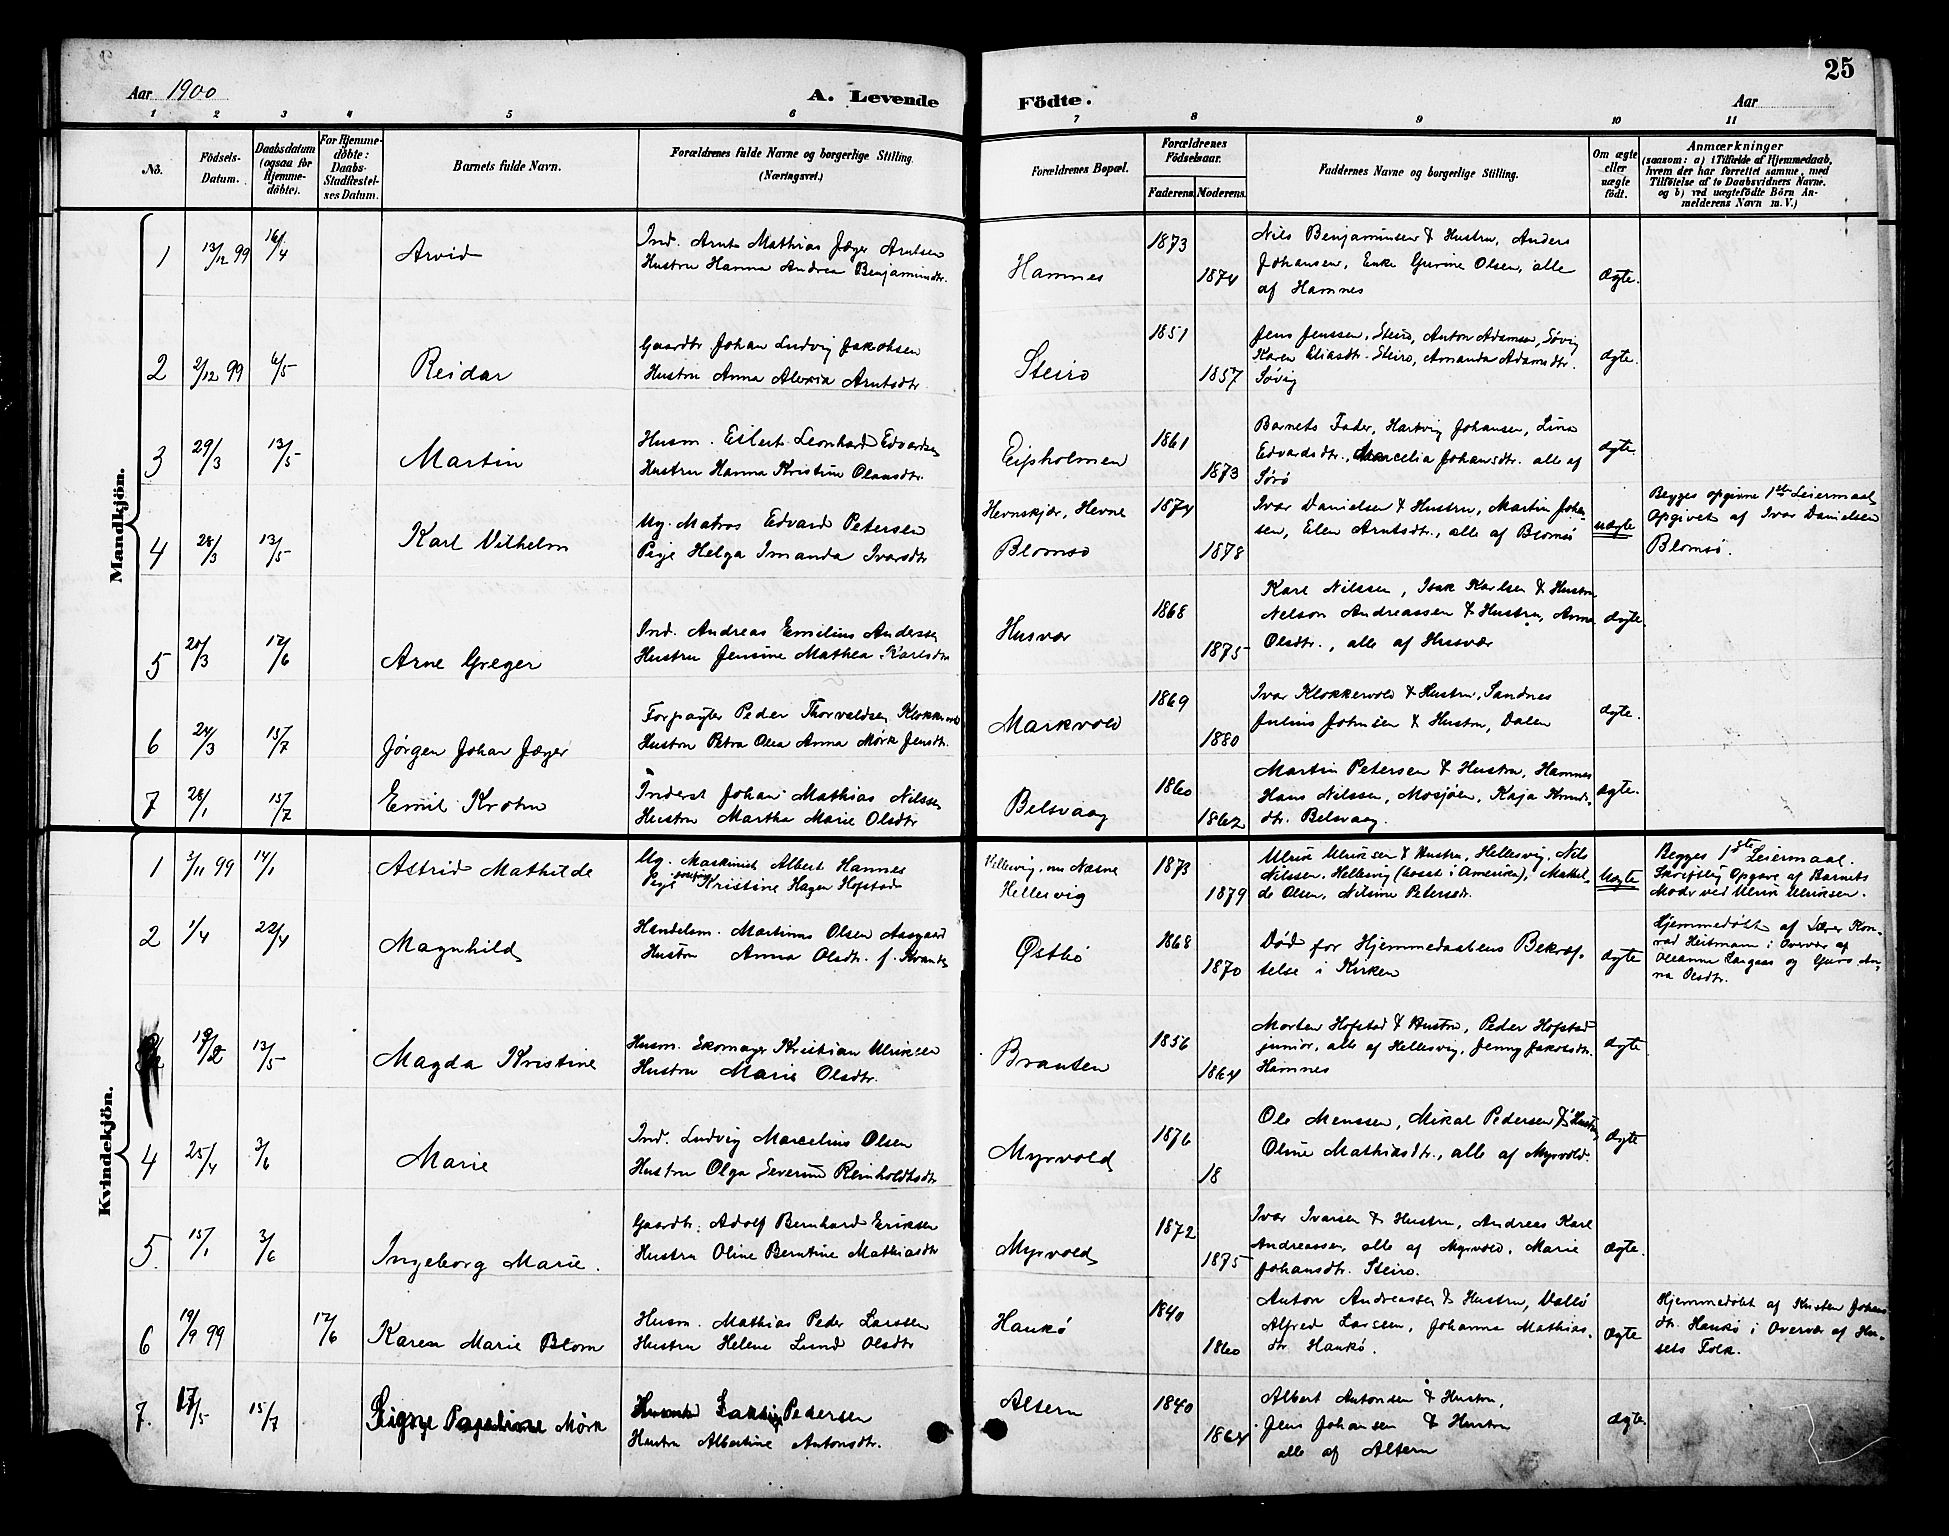 25
Aar 1900
A. Levende
Födte.
Aar
1 2 3 4 5 6 7 8 9 10 11
No.
Födsels-
Datum.
Daabsdatum
(ogsaa för
Hjemme-
döbte).
For Hjemme-
döbte:
Daabs-
Stadfæstel-
ses Datum.
Barnets fulde Navn.
Forældrenes fulde Navne og borgerlige Stilling.
(Næringsvei.)
Forældrenes Bopæl.
Forældrenes
Födselsaar.
Faderens. Moderens.
Faddernes Navne og borgerlige Stilling.
Om ægte
eller
uægte
födt.
Anmærkninger
(saasom: a) i Tilfælde af Hjemmedaab,
hvem der har forrettet samme, med
Tilföielse af to Daabsvidners Navne,
og b) ved uægtefödte Börn An-
melderens Navn m. V.)
Mandkjön.
1 13/12 99 16/4 Arvid
Ind. Arnt Mathias Jæger Arntsen
Hustru Hanna Andrea Benjaminsdtr.
Hamnes
1873
1874
Nils Benjaminsen & Hustru, Anders
Johansen, Enke Gurine Olsen, alle
af Hamnes
Ægte.
2 2/12 99 6/5 Reidar
Gaardbr Johan Ludvig Jakobsen
Hustru Anna Alexia Arntsdtr
Steiro
1851
1857
Jens Jenssen, Steiro, Anton Adamsen, Søvig
Karen Eliasdtr. Steiro, Amanda Adamsdtr.
Søvig
ægte.
3 29/3 13/5 Martin
Husm. Eilert Leonhard Edvardsen
Hustru Hanna Kristine Olausdtr.
1861
1873
Barnets Fader, Hartvig Johansen, Lina
Edvardsdtr., Marcelia Johansdtr. alle af
Sørø
ægte
4 28/3 13/5 Karl Vilhelm
Ug. Matros Edvard Petersen
Pige Helga Imanda Ivarsdtr
Hevnskjær, Hevne
Blomsø
1874
1878
Ivar Danielsen & Hustru, Martin Johan-
sen, Elen Arntsdtr., alle af Blomsø
uægte
Begges opgivne 1ste Leiermaal
Opgivet af Ivar Danielsen
Blomsø.
5 20/3 12/6 Arne Greger
Ind. Andreas Emilius Anderssen
Hustru Jensine Mathea Karlsdtr
Husvær
1868
1875
Karl Nilssen, Isak Karlsen & Hustru
Nelson Andreassen & Hustru, Anna
Olsdtr., alle af Husvær
ægte.
6 24/3 15/7 Jørgen Johan Jæger
Forpagter Peder Thorvaldsen Klokkervold
Hustru Petra Olea Anna Mørk Jensdtr.
Markvold
1869
1880
Ivar Klokkervold & Hustru, Sandnes
Julius Johnsen & Hustru, Dalen
ægte.
7 28/1 15/7 Emil Krohn
Inderst Johan Mathias Nilssen
Hustru Martha Marie Olsdtr
Belsvaag
1860
1862
Martin Petersen & Hustru, Hamnes
Hans Nilssen, Mosjøen, Kaja Knuds-
dtr. Belsvaag.
ægte.
Kvindekjön.
1 3/11 99 14/1 Astrid Mathilde
Ug. Maskinist Albert Hannes
Pige Kristine Hagen Hofstad
Hellesvig, nu Næsne
Hellesvig
1873
1879
Ulrik Ulriksen & Hustru, Hellesvig, Nils
Nilssen, Hellesvig (bosat i Amerika), Mathil-
de Olsen, Nilsine Petersdtr.
Uægte
Begges 1ste Leiermaal.
Skriftlig Opgave af Barnets
Moder ved Ulrik Ulriksen.
2 1/4 22/4 Magnhild
Handelsm. Martinus Olsen Aasgaard
Hustru Anna Olsdtr. f.
Østbø
1868
1870
Død før Hjemmedaabens Bekræf-
telse i Kirken
ægte
Hjemmedøbt af Lærer Kon-
rad Heitmann i Overvær af
Oleanna og Guro An-
na Olsdtr.
19/2 13/5 Magda Kristine
Husm. Skomager Kristian Ulriksen
Hustru Marie Olsdtr.
Brauten
1856
1864
Morten Hofstad & Hustru, Peder Hofstad
junior, alle af Hellesvig, Jenny Jakobsdtr.
Hamnes
ægte
4 25/4 3/6 Marie
Ind. Ludvig Marcelius Olsen
Hustru Olga Severine Reinholdtsdtr
Myrvold
1876
18
Ole Monssen, Mikal Pedersen & Hustru
Oline Mathiasdtr., alle af Myrvold.
Ægte
5 15/1 3/6 Ingeborg Marie.
Gaardbr. Adolf Bernhard Eriksen
Hustru Oline Berntine Mathiasdtr
Myrvold
1872
1875
Ivar Ivarsen & Hustru, Andreas Karl
Andreassen, alle af Myrvold, Marie
Johansdtr. Steiro.
ægte.
6 19/9 99 17/6 Karen Marie Blom
Husm. Mathias Peder Larssen
Hustru Helene Lund Olsdtr
Haukø
1840
1860
Anton Andreassen & Hustru, Vallø
Alfred Larsen, Johanna Mathias-
dtr. Haukø.
ægte
Hjemmedøbt af Kirsten Johans-
dtr. Haukø i Overvær af Hu-
sets Folk.
7. 17/5 15/7 Signe Mørk
Pedersen
Hustru Albertine Antonsdtr.
Altern
1840
1864
Albert Antonsen & Hustru,
Jens Johansen & Hustru
alle af Altern
ægte.